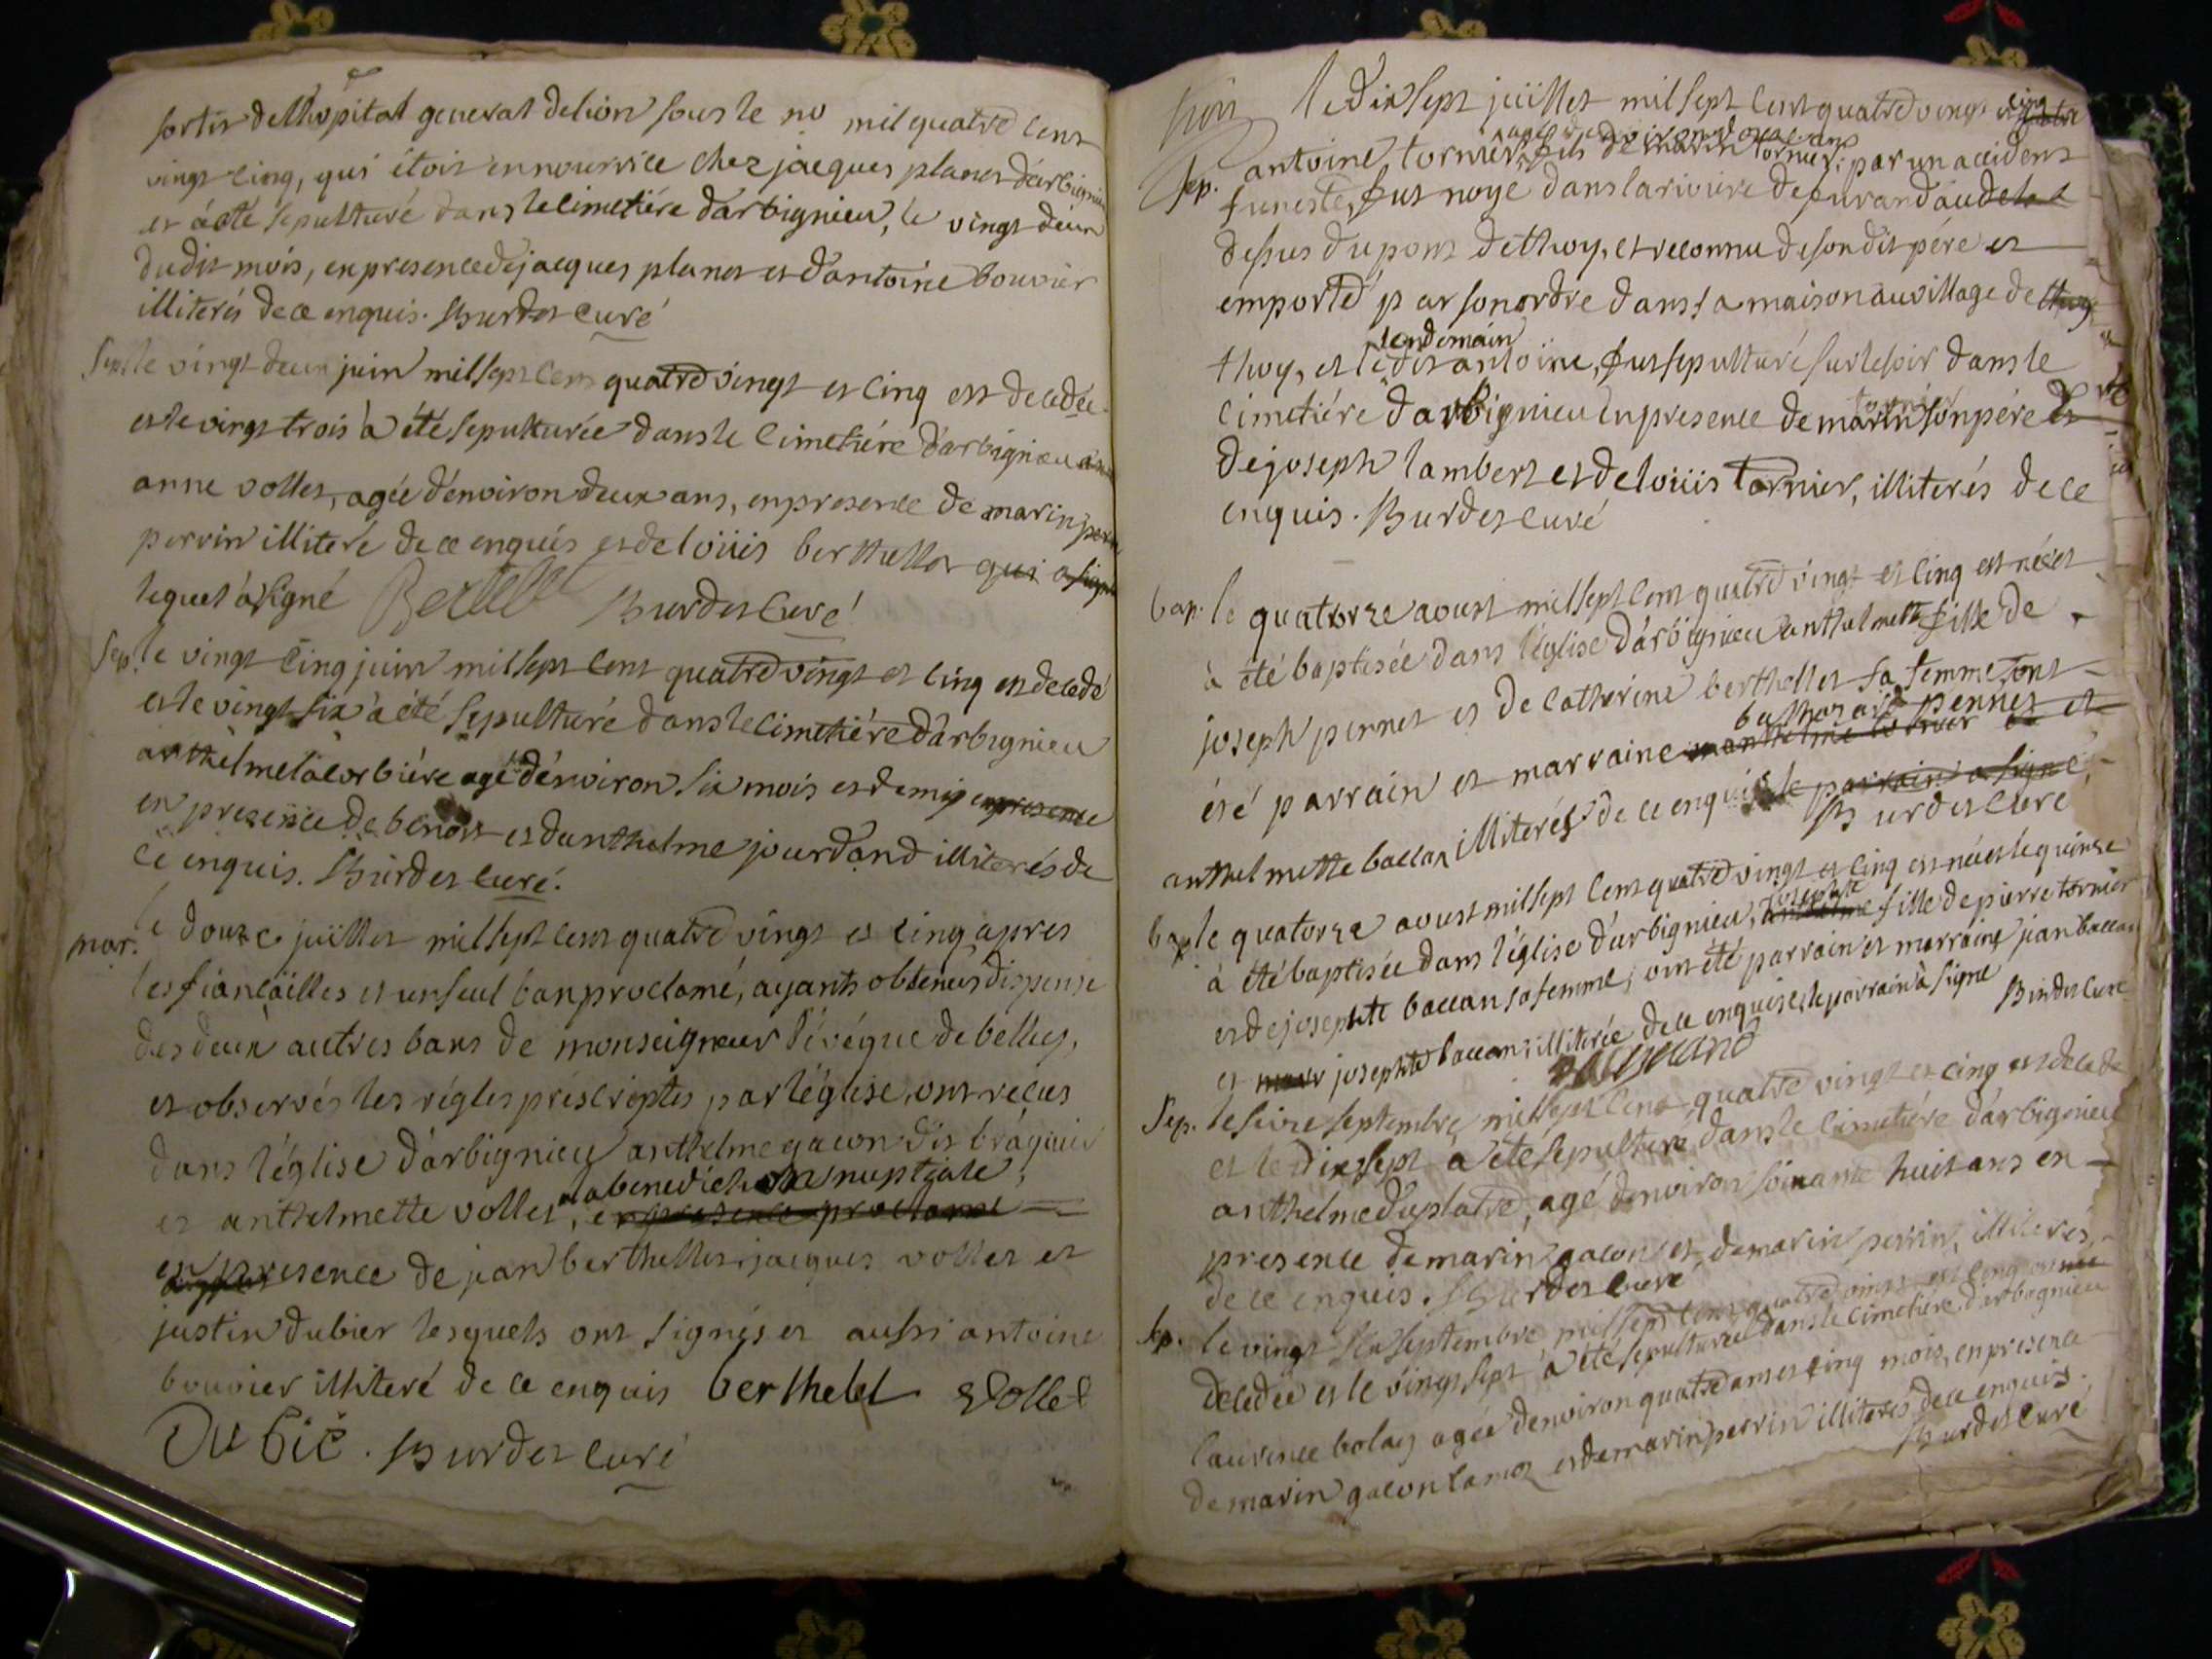 sortis de lhopital general de lion sous le no mil quatre cent
vingt cinq, qui étoit en nourrice chez jacques planet d'arbignieu
et a eté sepulturé dans le cimetiére d'arbignieu, le vingt deux
dudit mois, en presence de jacques planet et d'antoine bouvier
illiterés de ce enquis. Burdet curé
Sep. le vingt deux juin mil sept cent quatre vingt et cinq est decedée
et le vingt trois à été sepulturée dans le cimetiére d'arbignieu
anne vollet, agée d'environ deux ans, en presence de marin
perrin illiteré de ce enquis et de loüis berthellot qui a signé
lequel à signé Burdet curé
Sep. le vingt cinq juin mil sept cent quatre vingt et cinq est decedé
et le vingt six a eté sepulturé dans le cimetiére d'arbignieu
anthelme lacorbiére agé d'environ six mois et demi en presence
en presence de benoit et d'anthelme jourdand illiterés de
ce enquis. Burdet curé.
mar. le douze juillet mil sept cent quatre vingt et cinq apres
les fiancailles et un seul ban proclamé, ayants obtenus dispense
des deux autres bans de monseigneur l'évéque de belley,
et observés les régles préscriptes par l'église, ont reçus
dans l'église d'arbignieu anthelme gacon dit braquier
et anthelmette vollet, la benediction nuptiale,
en presence proclamé
en presence de jean berthellet, jacques vollet et
justin dubier lesquels ont signés et aussi antoine
bouvier illiteré de ce enquis berthelet Vollet
Du bié. Burdet curé
le dix sept juillet mil sept cent quatre vingt et cinq
agé d'environ douze ans
Sep. antoine tornier, fils de marin tornier, par un accident
funeste, fut noyé dans la riviere de furand au delat
dessus du pont de thoy, et reconnu de son dit pére et
emporté par son ordre dans sa maison au village de thoy
lendemain
thoy, et le dit antoine, fut sepulturé sur le soir dans le
tornier
cimetiére d'arbignieu en presence de marin son pére et
de joseph lambert et de loüis tornier, illiterés de ce
enquis. Burdet curé
bap. le quatorze aoust mil sept cent quatre vingt et cinq est née et
à été baptisée dans l'église d'arbignieu anthelmette fille de
joseph pernet et de catherine berthellet sa femme, ont
balthazard pennet et
été parrain et marraine anthelme
anthelmette baccon illiterés de ce enquis le parrain a signé
Burdet curé
bap. le quatorze aoust mil sept cent quatre vingt et cinq est née et le quinze
josephte
à été baptisée dans l'église d'arbignieu, anthelme fille de pierre tornier
et de josephte baccon sa femme, ont été parrain et marraine jean baccon
et marr josephte baccon illiterée de ce enquise, le parrain à signé Burdet curé
Sep. le seize septembre mil sept cent quatre vingt et cinq est decedé
et le dix sept a été sepulturé dans le cimetiére d'arbignieu
anthelme duplatre, agé d'environ soixante huit ans en
presence de marin gacon et de marin perrin, illiterés,
de ce enquis. Burdet curé
Sep. le vingt six septembre mil sept cent quatre vingt et cinq est née
decedée et le vingt sept à été sepulturée dans le cimetiére d'arbignieu
laurence bolay agée d'environ quatre ans et cinq mois, en presence
de marin gacon et de marin perrin illiterés de ce enquis.
Burdet curé